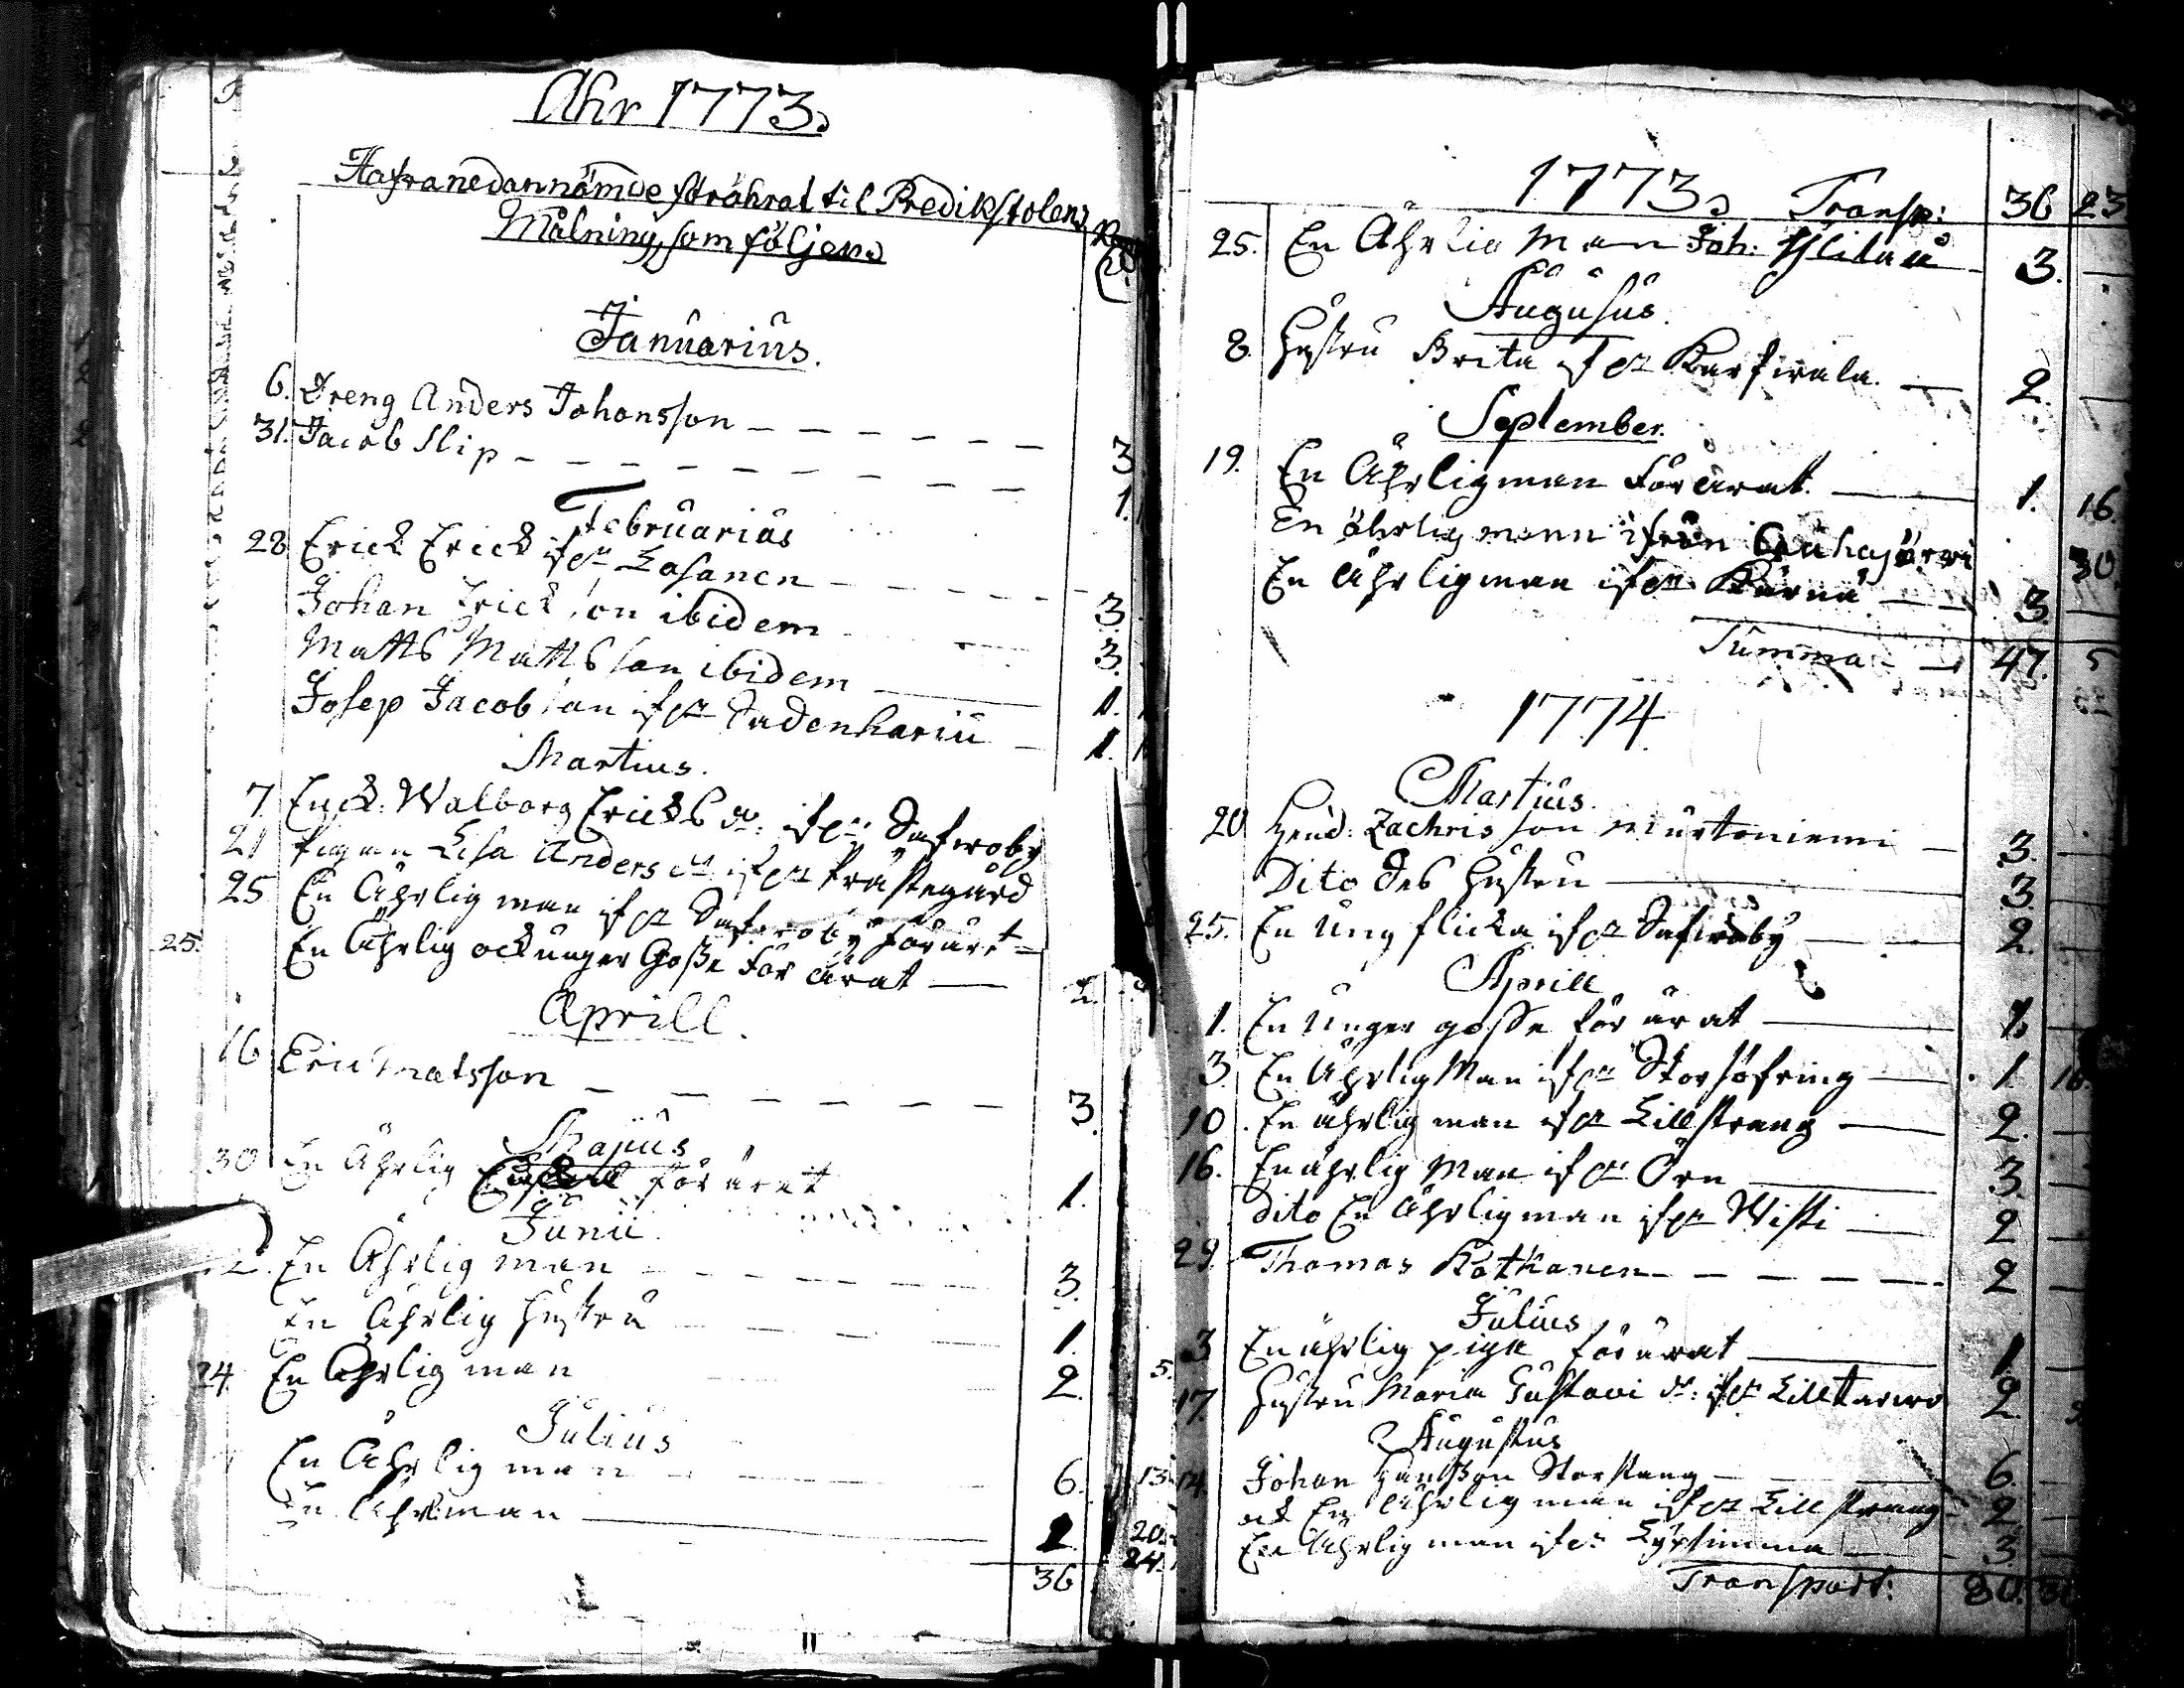 Åhr 1773.
Hafva nedannämde förährat til Predikstolens
Målning, som följer.
Januarius.
6. Dreng Anders Johansson 3
31. Jacob Slip 1.
Februarius
28 Erick Ericks ifrn Lasanen 3.
Johan Ericksson ibidem 3.
Matts Mattsson ibidem 1.
Josep Jacobsson ifrn Sadenharju 1.
Martius.
7 Enck: Walborg Ericksdr: ifrn Safwoby
21 Pigan Lisa Andersdr ifrn Prästegård
25 En Ährlig man ifrn Safwoby förärt
25. En Ährlig och unger Gosse för ärat 2.
Aprill.
16 Eric Matsson 3.
Majus
30 En Ährlig förärat 1.
Junii
En Ährlig man 3.
En Ährlig hustru 1.
24 En Ährlig man 2.
Julius
En Ährlig man 6.
En Ährl. man
36
1773. Transp: 36 23
25. En Ährlig Man Joh: 3.
Augusus.
8. Hustru Brita ifrn Karfwala. 2.
September.
19. En Ährlig man För ärat. 1. 16.
En ährlig mann ifrån 30.
En Ährlig man ifrn Kärnä 3.
Summa 47. 5
1774
Martius.
20 Hend: Zachrisson Murtoniemi 3.
Dito Des Hustru 3.
25. En Ung flicka ifrn Safwoby 2.
Aprill
1. En Unger gosse för ärat 1.
3. En Ährlig Man ifrn Storsöfring 1 16.
10. En ährlig man ifrn Lillstrang 2.
16. En ährlig Man ifrn Örn 3.
Dito En Ährlig man ifrn Wisti 2
29. Thomas Kåthanen 2
Julius
3 En ährlig piga för ärat 1
17. Hustru Maria Gustavi dr: ifrn Lilltarwo 2
Augustus
14. Johan Hansson Storstang 6.
ock En Ährlig man ifrn Lillstrang 2
En Ährlig man ifrn 3
Transport: 80.